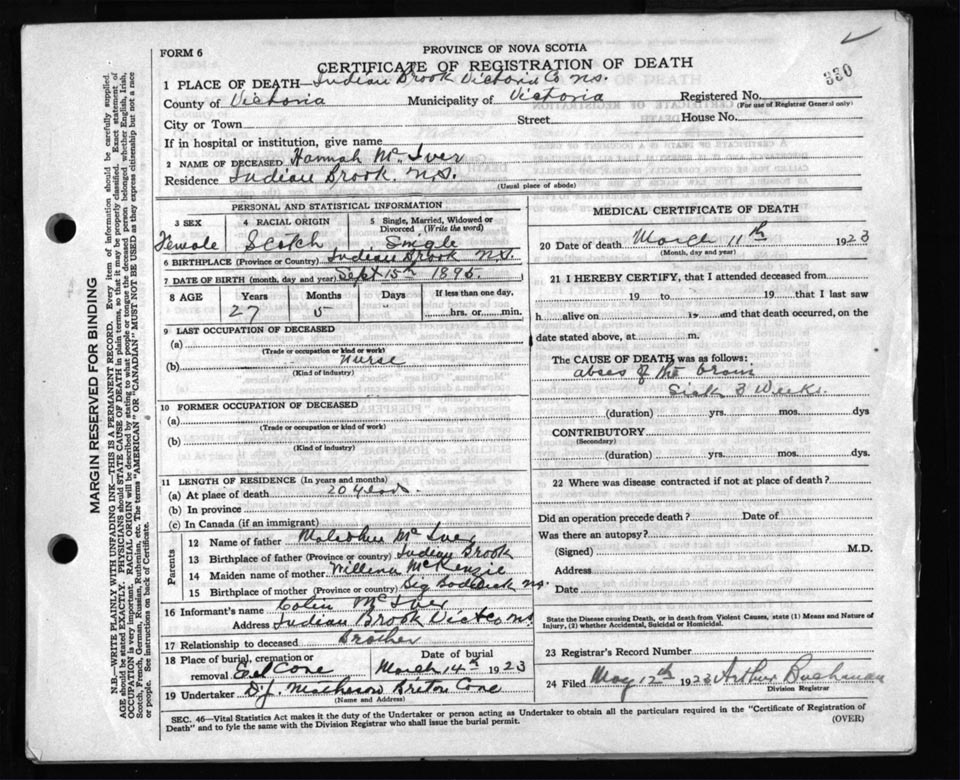 FORM 6
PROVINCE OF NOVA SCOTIA
CERTIFICATE OF REGISTRATION OF DEATH
330
1 PLACE OF DEATH—Indian Brook Victoria Co N.S.
County of Victoria Municipality of Victoria Registered No.
(For use of Registrar General only)
City or Town Street House No.
If in hospital or institution, give name
2 NAME OF DECEASED Hannah Mc Iver
Residence Indian Brook. N.S.
(Usual place of abode)
PERSONAL AND STATISTICAL INFORMATION
3 SEX 4 RACIAL ORIGIN 5 Single, Married, Widowed or Divorced (Write the word)
Female Scotch Single
6 BIRTHPLACE (Province or Country) Indian Brook N.S.
7 DATE OF BIRTH (month, day and year) Sept 15th 1895.
8 AGE Years Months Days If less than one day,
27 5 hrs. or min.
9 LAST OCCUPATION OF DECEASED
(a)
(Trade or occupation or kind of work)
(b) Nurse
(Kind of industry)
10 FORMER OCCUPATION OF DECEASED
(a)
(Trade or occupation or kind of work)
(b)
(Kind of industry)
11 LENGTH OF RESIDENCE (In years and months)
(a) At place of death 20 years
(b) In province
(c) In Canada (if an immigrant)
Parents
12 Name of father Malcolm Mc Iver
13 Birthplace of father (Province or country) Indian Brook
14 Maiden name of mother Willena McKenzie
15 Birthplace of mother (Province or country) Big N.S.
16 Informant's name Colin Mc Iver
Address Indian Brook Vict Co N.S
17 Relationship to deceased Brother
18 Place of burial, cremation or removal Eel Cove Date of burial March 14th 1923
19 Undertaker D.J. Matheson Briton Cove
(Name and Address)
MEDICAL CERTIFICATE OF DEATH
20 Date of death March 11th 1923
(Month, day and year)
21 I HEREBY CERTIFY, that I attended deceased from
19 to 19 that I last saw
h alive on 19 and that death occurred, on the
date stated above, at m.
The CAUSE OF DEATH was as follows:
abses of the brain
Sick 3 Weeks
(duration) yrs. mos. dys
CONTRIBUTORY
(Secondary)
(duration) yrs. mos. dys.
22 Where was disease contracted if not at place of death?
Did an operation precede death? Date of
Was there an autopsy?
(Signed) M.D.
Address
Date
State the Disease causing Death, or in death from Violent Causes, state (1) Means and Nature of
Injury, (2) whether Accidental, Suicidal or Homicidal.
23 Registrar's Record Number
24 Filed May 12th 1923 Arthur Buchanan
Division Registrar
SEC. 46—Vital Statistics Act makes it the duty of the Undertaker or person acting as Undertaker to obtain all the particulars required in the "Certificate of Registration of
Death" and to fyle the same with the Division Registrar who shall issue the burial permit.
(OVER)
MARGIN RESERVED FOR BINDING
N.B.—WRITE PLAINLY WITH UNFADING INK—THIS IS A PERMANENT RECORD. Every item of information should be carefully supplied.
AGE should be stated EXACTLY. PHYSICIANS should STATE CAUSE OF DEATH in plain terms, so that it may be properly classified. Exact statement of
OCCUPATION is very important. RACIAL ORIGIN will be described by stating to what people or tongue the deceased person belonged, whether English, Irish,
Scotch, French, German, Russian, Ruthenian, etc. The terms "AMERICAN" OR "CANADIAN" MUST NOT BE USED as they express citizenship but not a race
or people. See instructions on back of Certificate.